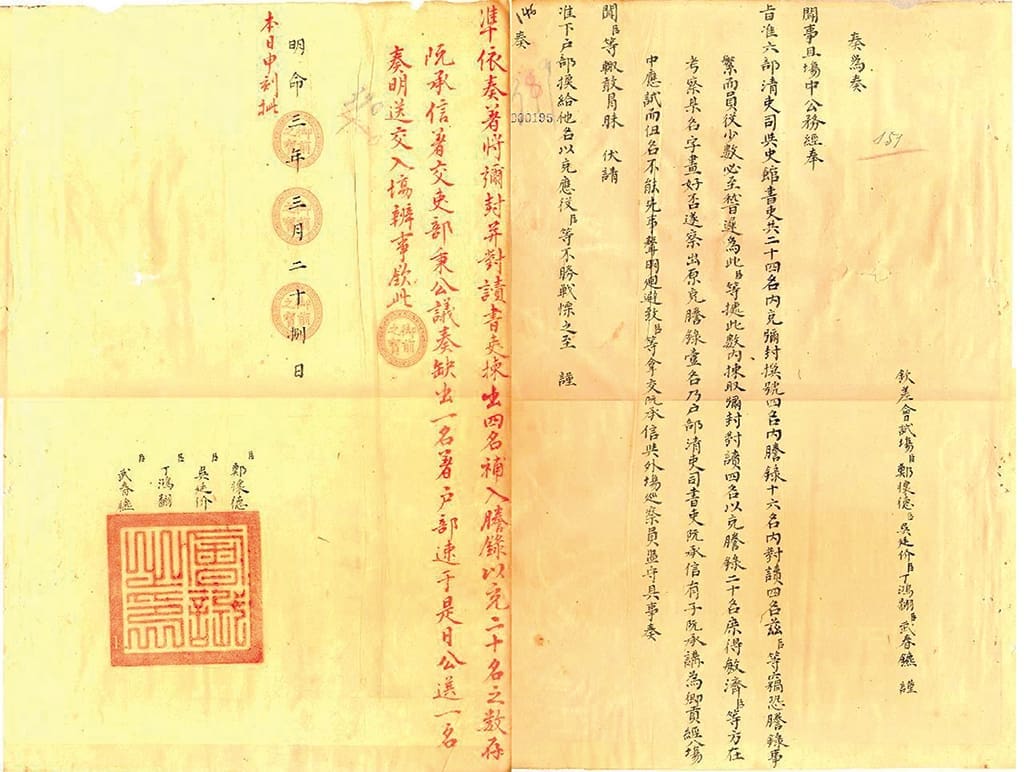 欽差會試場臣鄭懷德臣吳廷价臣丁鴻翻臣武春 謹
奏為奏
聞事且場中公務經奉
旨准六部清吏司與史館書吏共二十四名內充彌封換號四名內謄錄十六名內對讀四名茲臣等竊恐謄錄事
繁而員役少數必至暫遲為此臣等據此數內揀取彌封對讀四名以充謄錄二十名庶得敏濟臣等方在
考察某名字畫好否遂察出原充謄錄壹名乃戶部清吏司書吏阮承信有子阮承講為鄉貢經入場
中應試而伊名不能先事聲明迴避致臣等拿交阮承信與外場巡察員監守具事奏
聞臣等輒敢肩昧 伏請
准下戶部換給他名以充應役臣等不勝戰慄之至 謹
奏
146
151
000195
準依奏著將彌封并對讀書吏揀出四名補入謄錄以充二十名之數存
阮承信著交吏部秉公議奏缺出一名著戶部速于是日公送一名
奏明送交入場辦事欽此
御前之寶
明命三年三月二十捌日
御前之寶
御前之寶
御前之寶
本日中刻批
臣鄭懷德
臣吳廷价
臣丁鴻翻
臣武春
會試之印